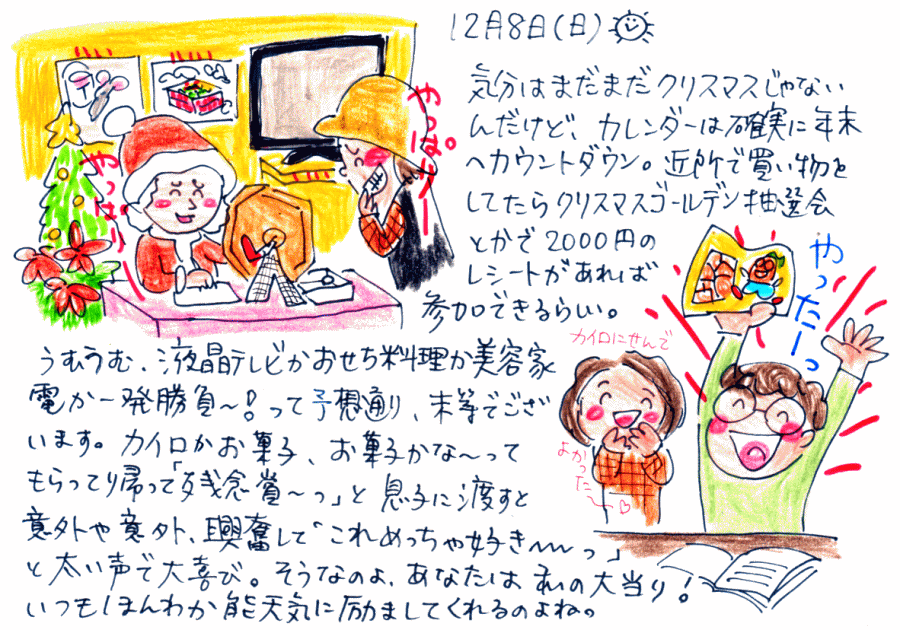 12月8日(日)
気分はまだまだクリスマスじゃない
んだけど、カレンダーは確実に年末
へカウントダウン。近所で買い物を
してたらクリスマスゴールデン抽選会
とかで2000円の
レシートがあれば
参加できるらい。
やっぱりー
やっぱー
やったーっ
カイロにせんで
よかったー
うむうむ、液晶テレビかおせち料理か美容家
電か一発勝負〜!って予想通り、末等でござ
います。カイロかお菓子、お菓子かな〜って
もらってり帰って「残念賞〜っ」と息子に渡すと
意外や意外、興奮して「これめっちゃ好き〜〜っ」
と太い声で大喜び。そうなのよ、あなたは私の大当り!
いつもほんわか能天気に励ましてくれるのよね。